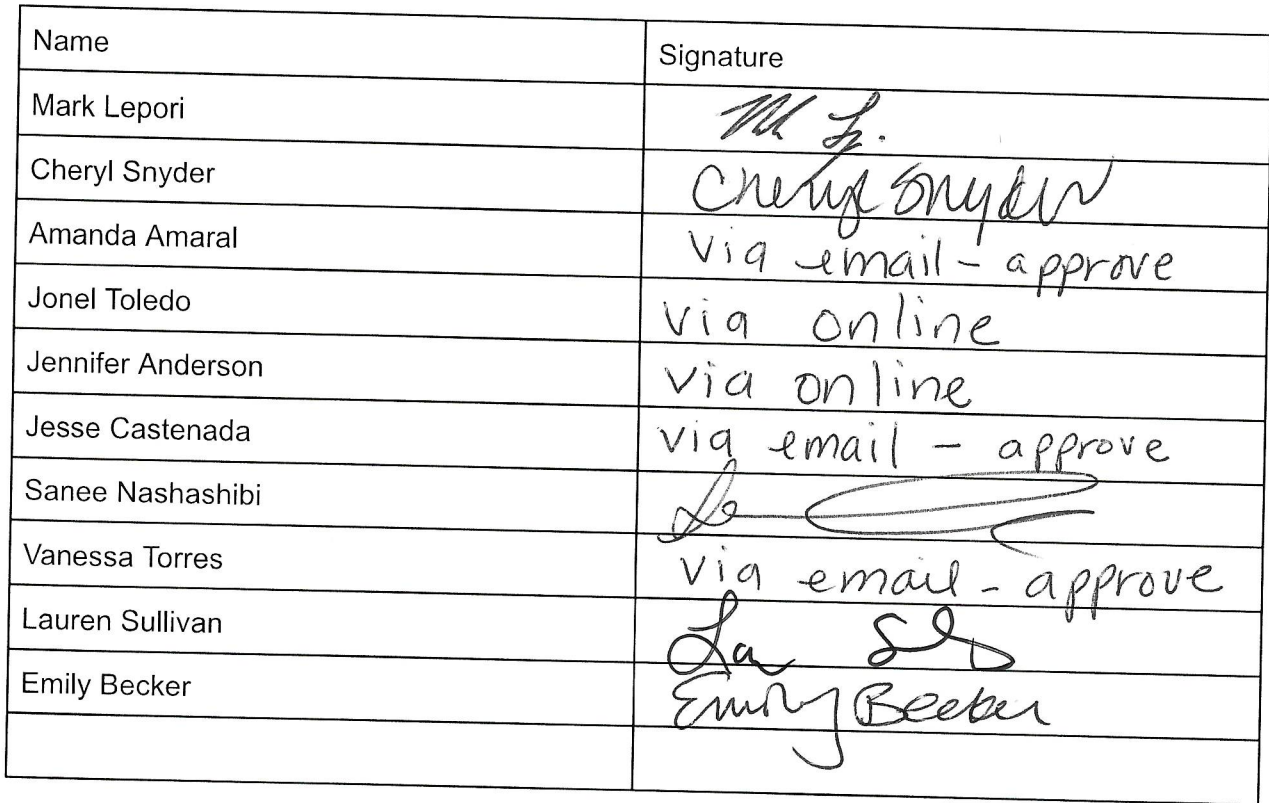 Name Signature
Mark Lepori M L.
Cheryl Snyder Cheryl Snyder
Amanda Amaral via email - approve
Jonel Toledo via online
Jennifer Anderson via online
Jesse Castenada via email - approve
Sanee Nashashibi
Vanessa Torres via email - approve
Lauren Sullivan
Emily Becker Emily Becker